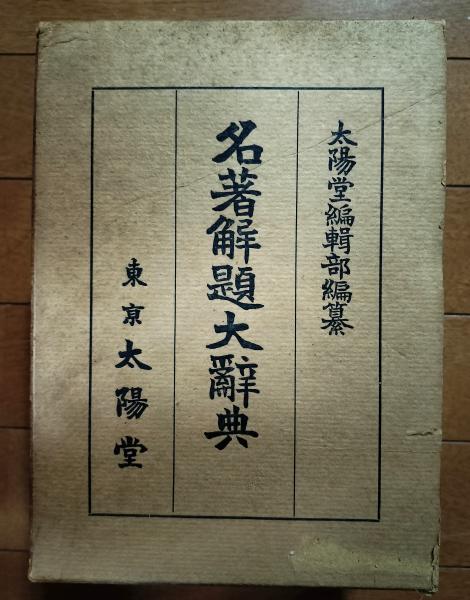 太陽堂編輯部編纂
名著解題大辭典
東京太陽堂